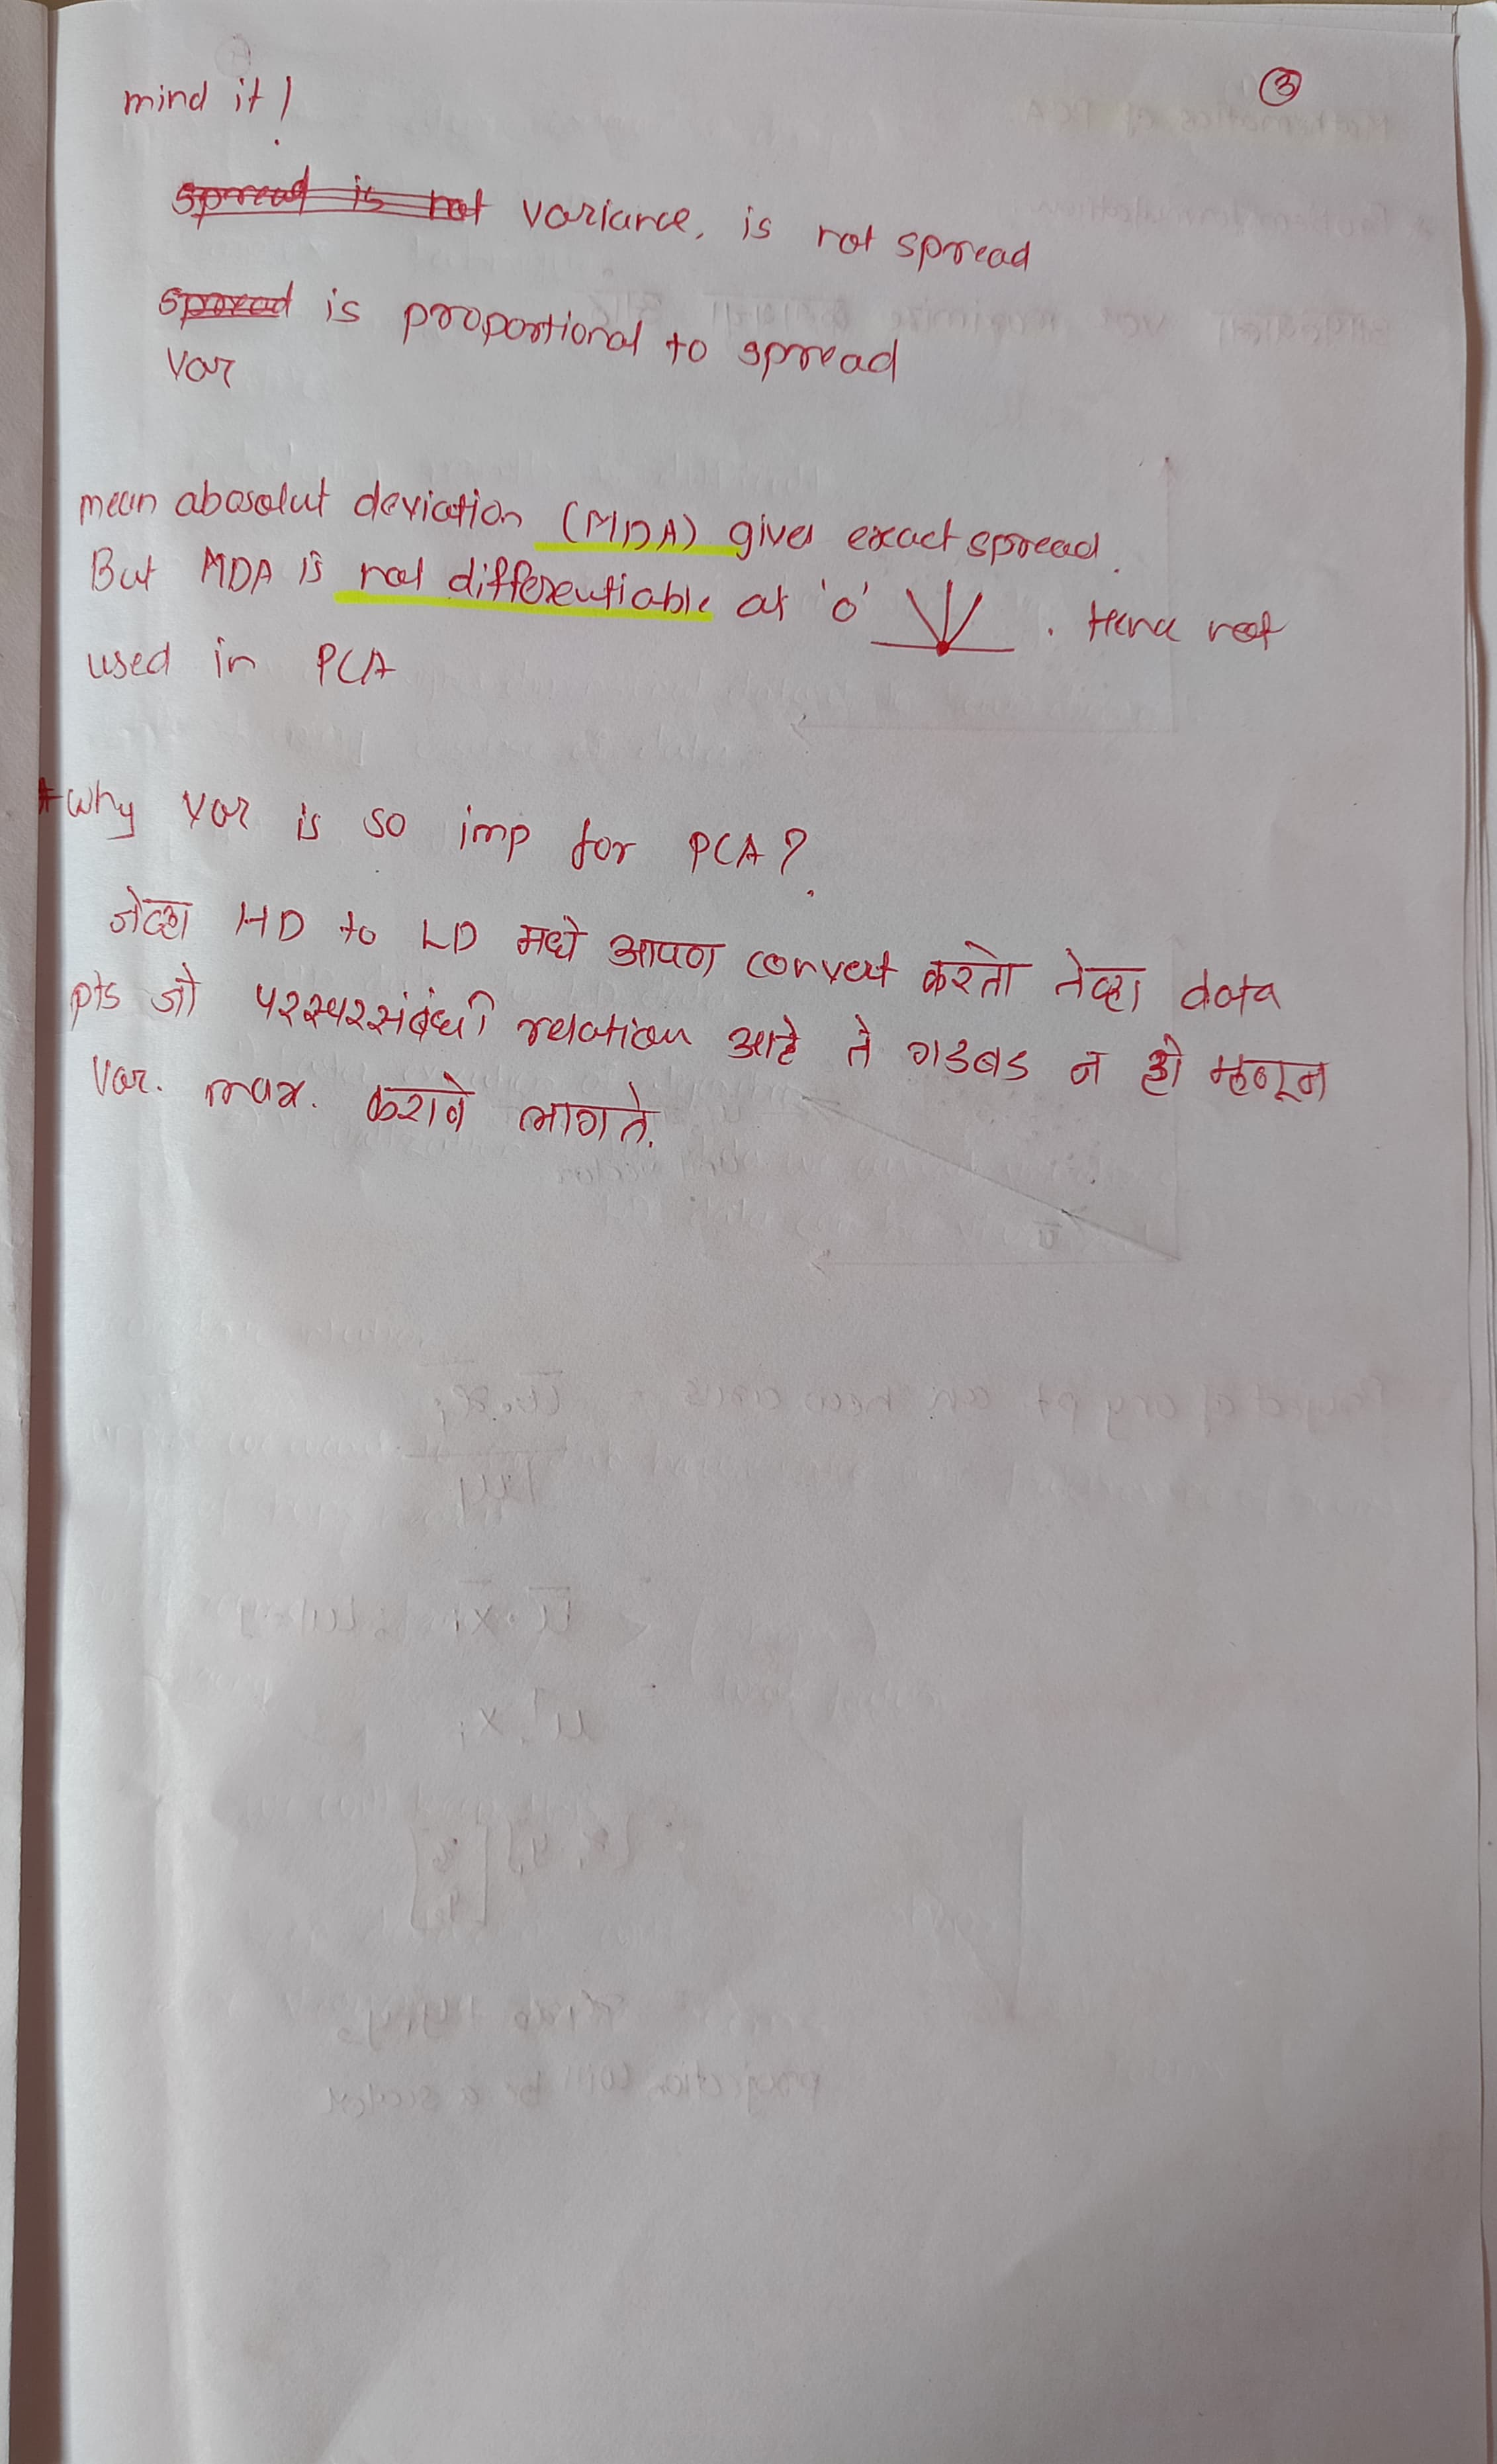 ③
mind it !
spread is not variance, is not spread
spread is proportional to spread
var
mean abosolut deviation (MDA) gives exact spread.
But MDA is not differentiable at 'o' . Hence not
used in PCA
* why var is so imp for PCA?
जेव्हा HD to LD मधे आपण convert करतो तेव्हा data
pts जो परस्परसंबंधी relation आहे ते गडबड न हो म्हणून
var. max. करावे लागते.